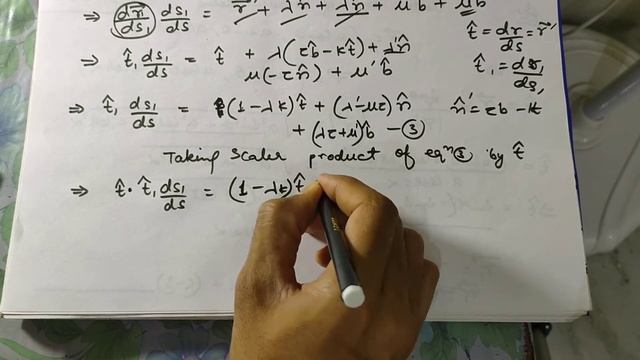 ⇒ (dr̄/ds₁) ds₁/ds = r̄' + λ'n̂ + λn̂' + μ'b + μb'
t̂ = dr/ds = r̄'
⇒ t̂₁ ds₁/ds = t̂ + λ(τb̂ - kt̂) + λ'n̂
μ(-τn̂) + μ'b̂
t̂₁ = dr₁/ds₁
⇒ t̂₁ ds₁/ds = (1-λk)t̂ + (λ'-μτ)n̂
n̂' = τb - kt
+ (λτ+μ')b̂ - ③
Taking Scaler product of eqⁿ ③ by t̂
⇒ t̂ · t̂₁ ds₁/ds = (1-λk)t̂